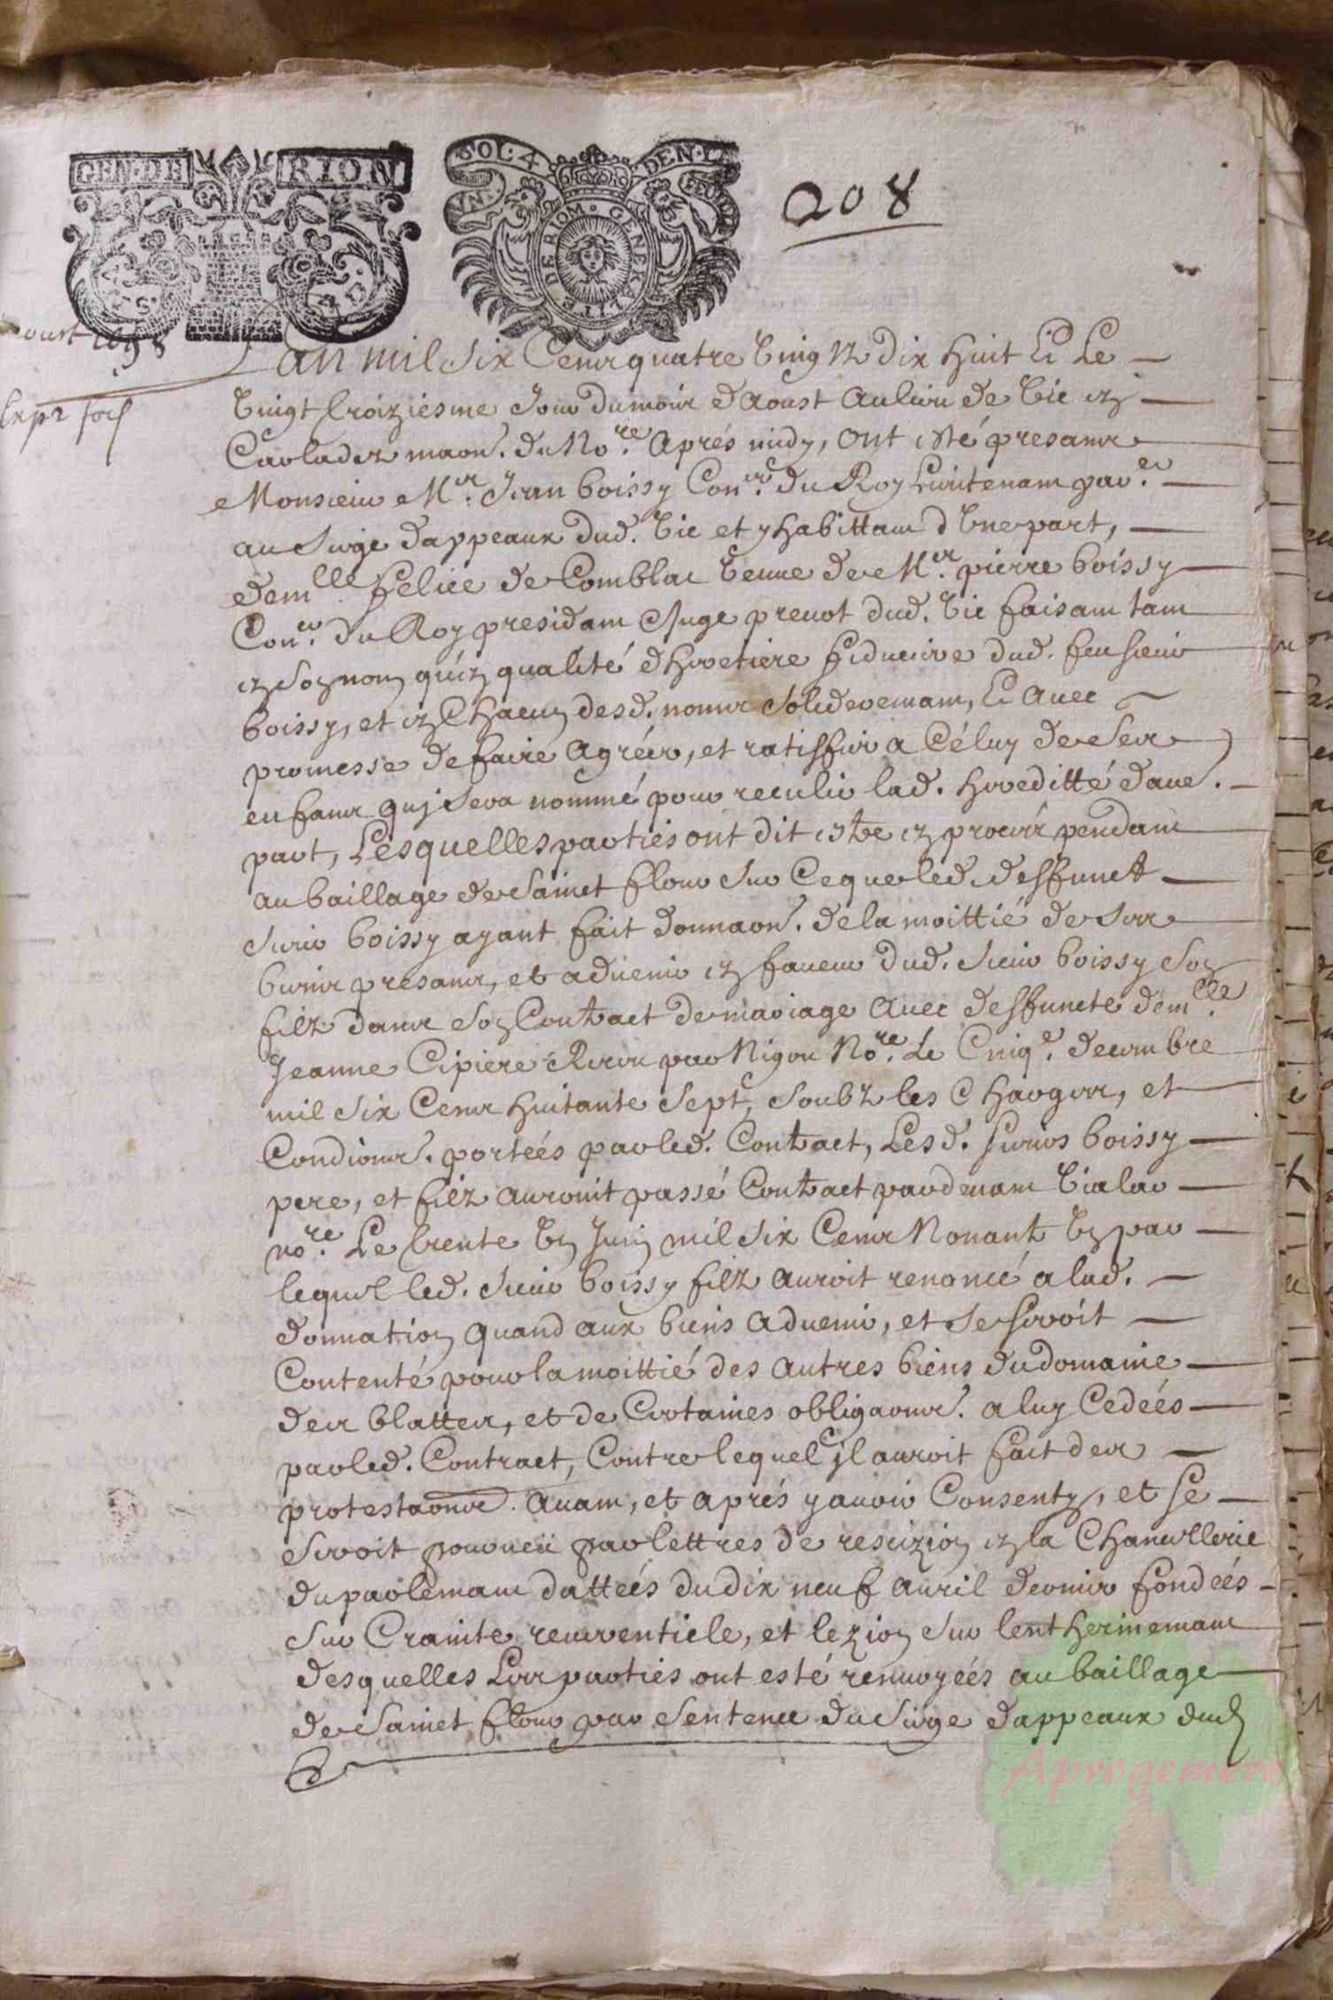 GEN·DE RION
VN·SOL·4 DEN·LA FEUILLE
GENERALITE DE RIOM
208
aoust 1698
Expé fois
L'an mil six Cens quatre vingtz dix huit Et Le
vingt troiziesme Jour du mois d'Aoust Au lieu de vic en
Carladez maon. du No.re Aprés midy, ont esté presans
Monsieur M.r Jean boissy Con.er du Roy Lieutenant par.er
au Siege d'appeaux dud. vic et y habittant d'Une part,
dem.lle felice de Comblat veuve de M.r pierre boissy
Con.er du Roy presidant Juge prevot dud. vic faisant tant
en son nom qu'en qualité d'heretiere fiduciere dud. feu sieur
boissy, et en Chacun desd. noms solideremant, Et Avec
promesse de faire Agréer, et ratiffier a Céluy de Ses
enfans quj Sera nommé pour reculir lad. hereditté d'aue.
part, Lesquelles parties ont dit estre en procés pendant
au baillage de Sainct flour Sur Ce que led. deffunct
sieur boissy ayant fait donnaon. de la moittié de Ses
biens presans, et advenir en faveur dud. sieur boissy Son
filz dans Son Contract de mariage Avec deffuncte dem.lle
Jeanne Cipiere Receu par Nigou No.re Le Cinq.e decembre
mil six Cens huitante sept, soubz les Charges, et
Condions. portées par led. Contract, Lesd. sieurs boissy
pere, et filz auroint passé Contract pardevant vialar
no.re Le trente Un Juin mil six Cens Nonante Un par
lequel led. sieur boissy filz auroit renoncé a lad.
donnation quand aux biens advenir, et se seroit
Contenté pour la moittié des Autres biens du domaine
des blattes, et de Certaines obligaons. a luy Cedeés
par led. Contract, Contre lequel jl auroit fait des
protestaons. Avant, et Aprés y avoir Consenty, et se
seroit pourveü par lettres de rescizion en la Chancellerie
du parlemant dattées du dix neuf Avril dernier fondeés
sur Crainte reverentiele, et lezion sur lentherinemant
desquelles Les parties ont esté renvoyeés au baillage
de Sainct flour par Sentence du Siege d'appeaux dud
Aprogemere